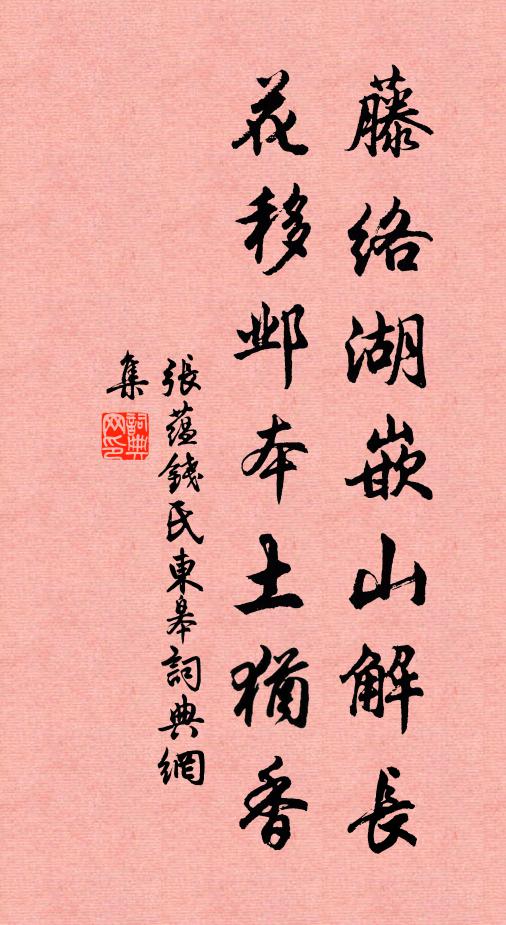 藤络湖嵌山解長
花移邺本土猶香
張蕴錢氏東皋詞典網
集
詞典
网印